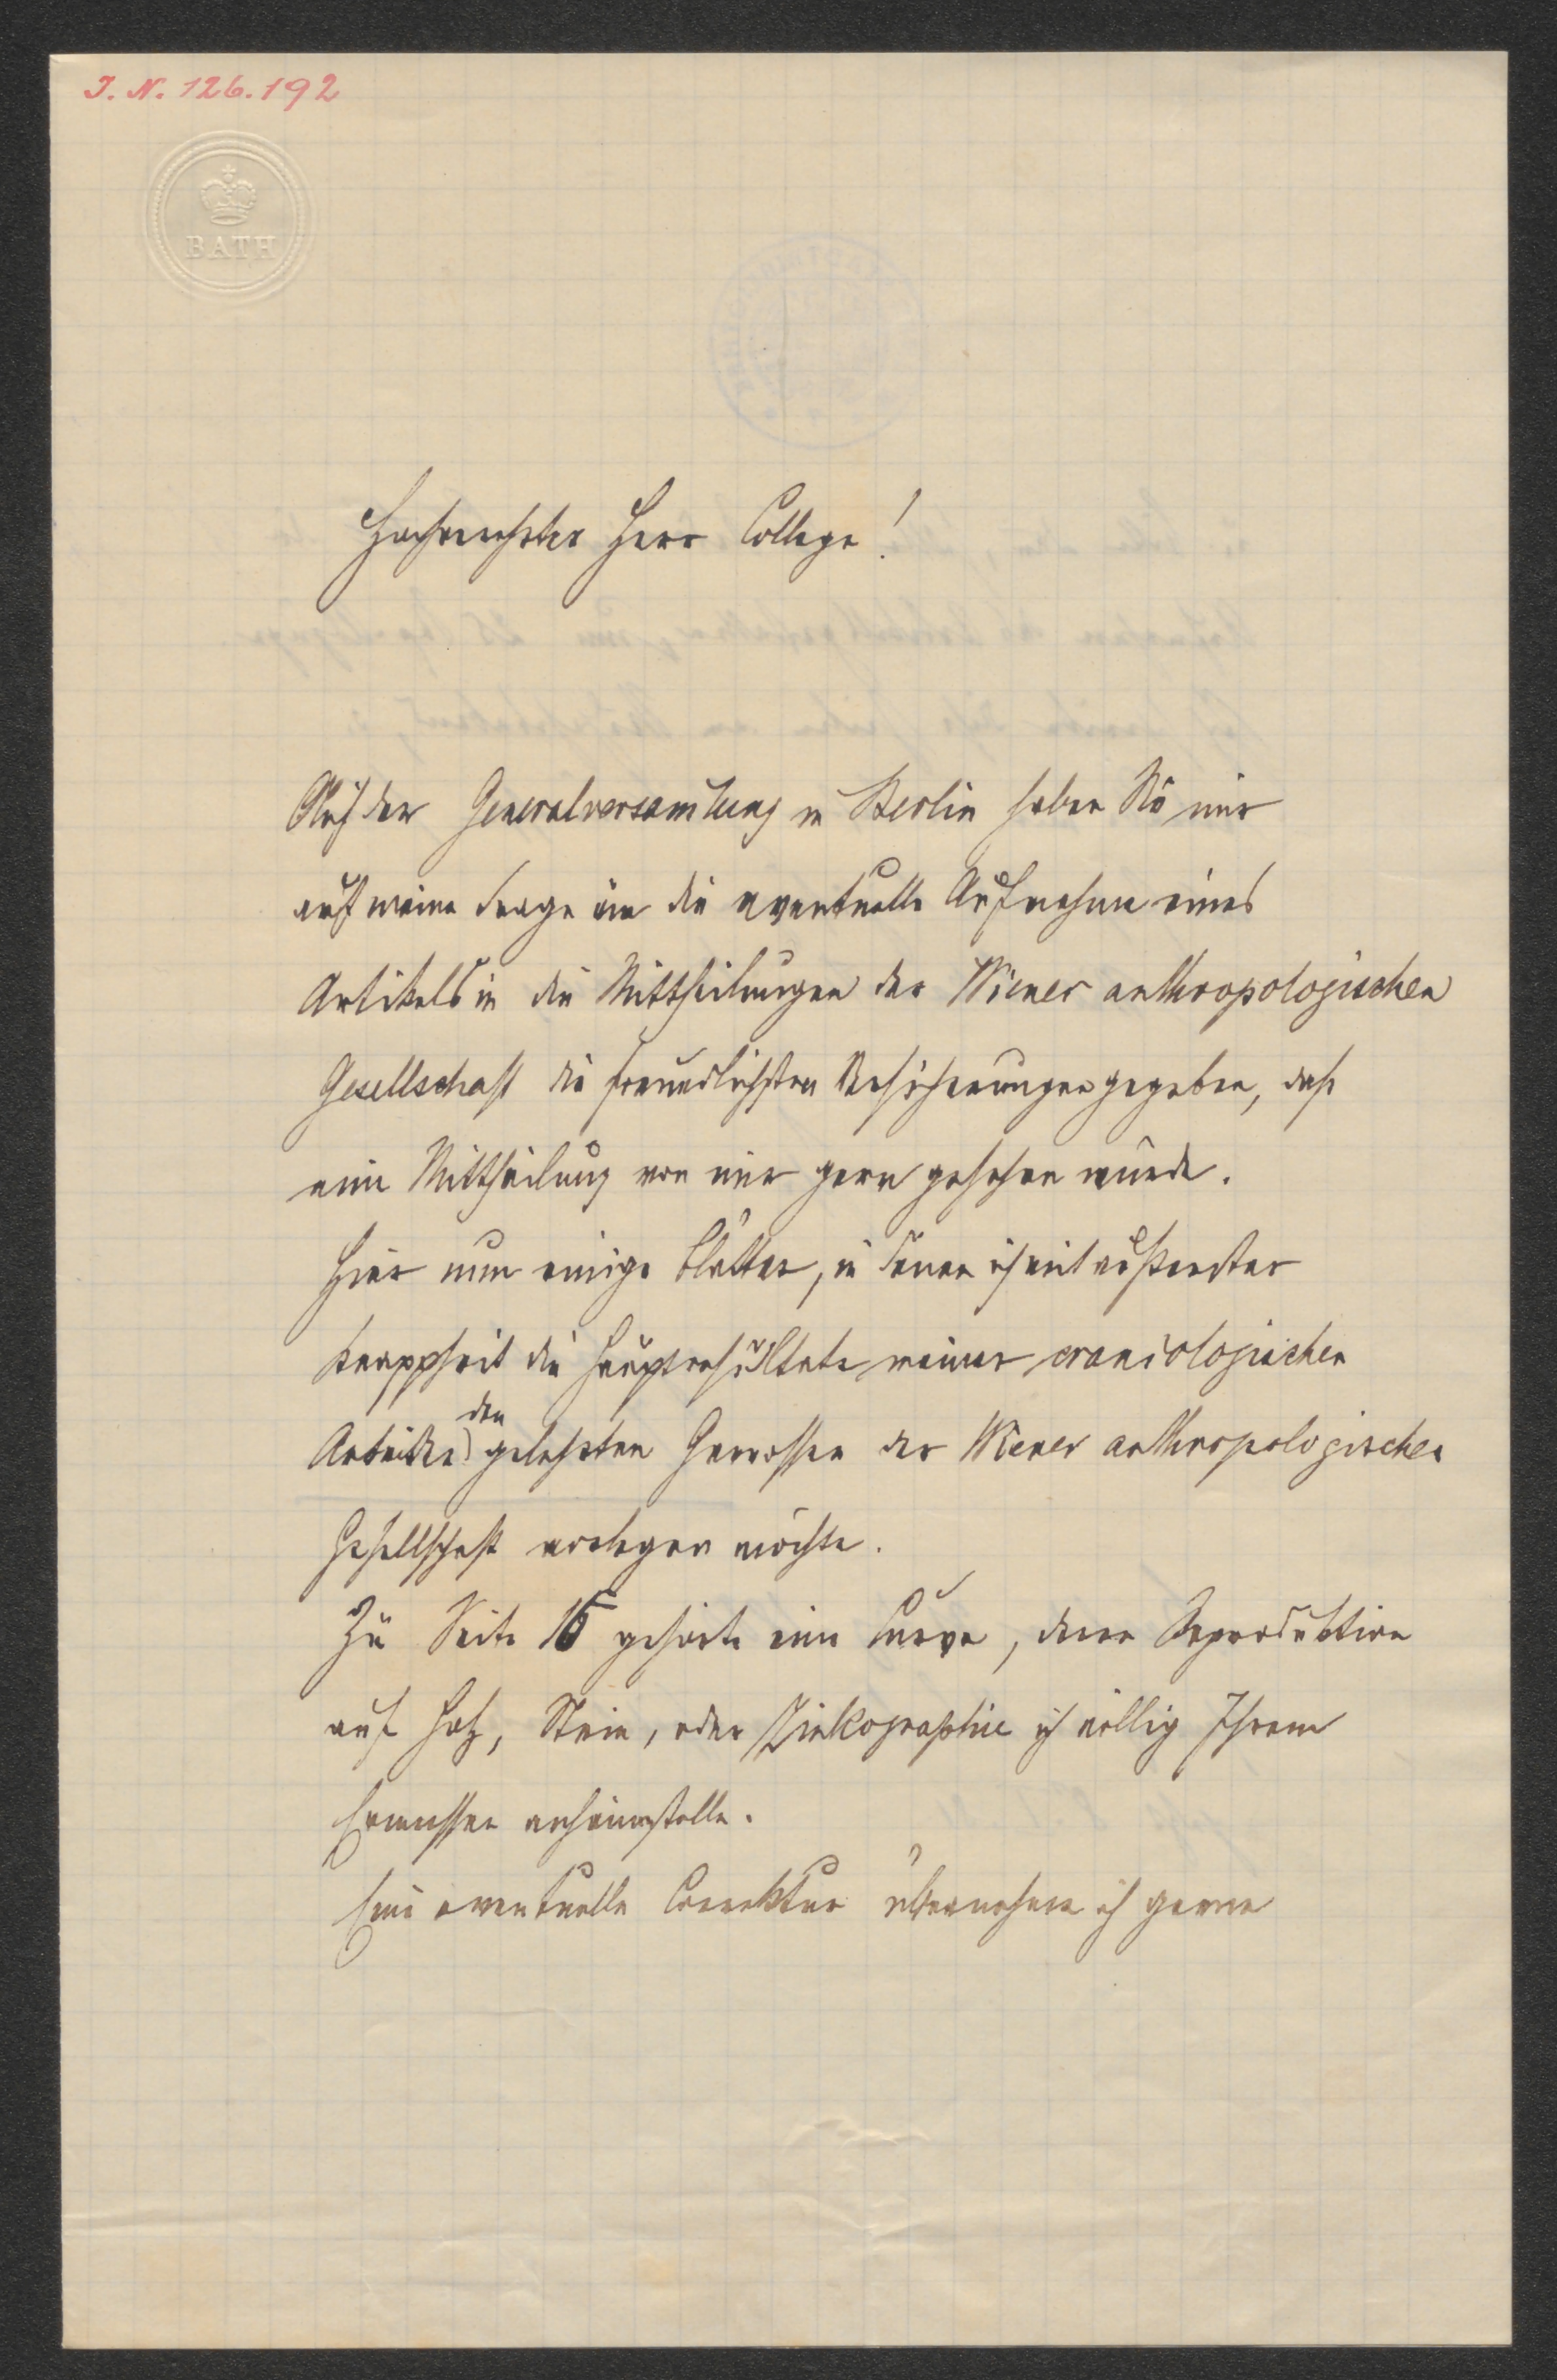 J. N. 126.192
BATH
Hochverehrter Herr College!
Auf der Generalversamlung in Berlin haben Sie mir
auf meine Frage um die eventuelle Aufnahme eines
Artikels in die Mittheilungen der Wiener anthropologischen
Gesellschaft die freundlichsten Versicherungen gegeben, daß
eine Mittheilung von mir gern gesehen würde.
Hier nun einige Blätter, in denen ich mit äußerster
Knappheit die Hauptresultate meiner craniologischen
Arbeiten den gelehrten Genossen der Wiener anthropologischen
Gesellschaft vorlegen möchte.
Zu Seite 15 gehört eine Curve, deren Reproduktion
auf Holz, Stein, oder Zinkographie ich völlig Ihrem
Ermessen anheimstelle.
Eine eventuelle Correktur übernehme ich gerne